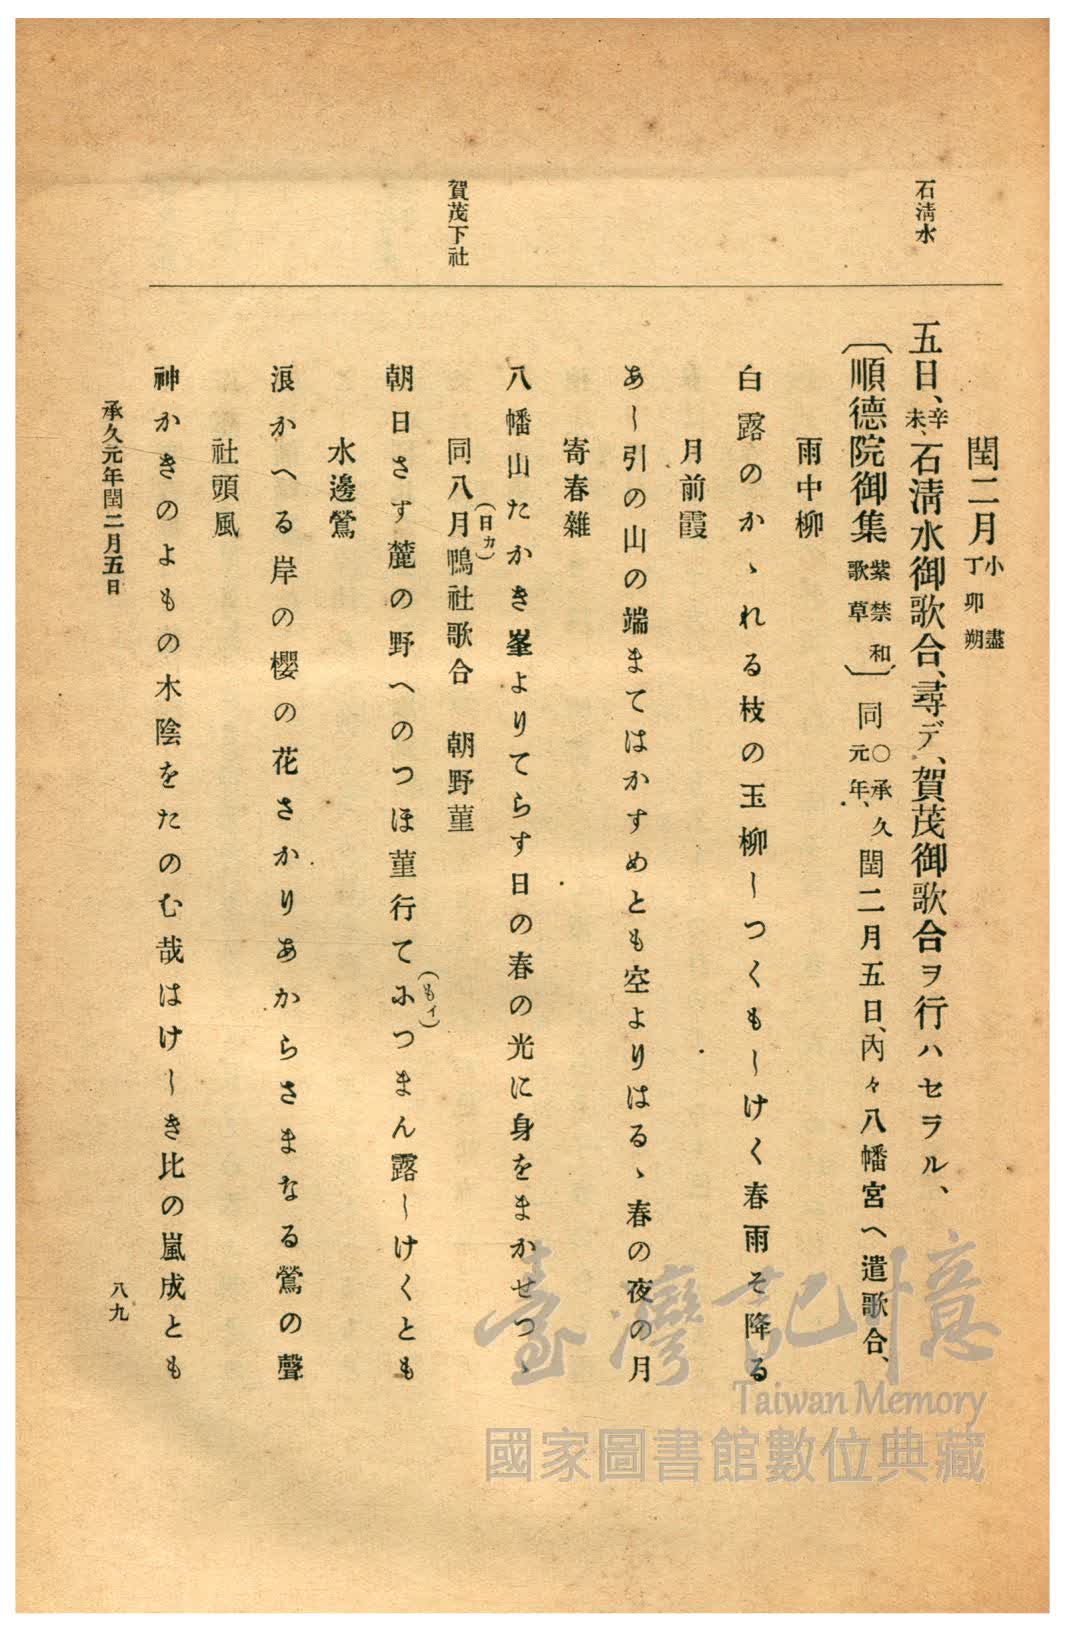 石淸水
閏二月小盡丁卯朔
五日、辛未、石淸水御歌合、尋デ、賀茂御歌合ヲ行ハセラル、
〔順德院御集紫禁和歌草〕同〇承久元年、閏二月五日、內々八幡宮へ遣歌合、
雨中柳
白露のかゝれる枝の玉柳しつくもしけく春雨そ降る
月前霞
あし引の山の端まてはかすめとも空よりはるゝ春の夜の月
寄春雜
八幡山たかき峯よりてらす日の春の光に身をまかせつゝ
賀茂下社
同八月(日カ)鴨社歌合 朝野菫
朝日さす麓の野へのつほ菫行てに(もイ)つまん露しけくとも
水邊鶯
浪かへる岸の櫻の花さかりあからさまなる鶯の聲
社頭風
神かきのよもの木陰をたのむ哉はけしき比の嵐成とも
承久元年閏二月五日
八九
臺灣記憶
Taiwan Memory
國家圖書館數位典藏